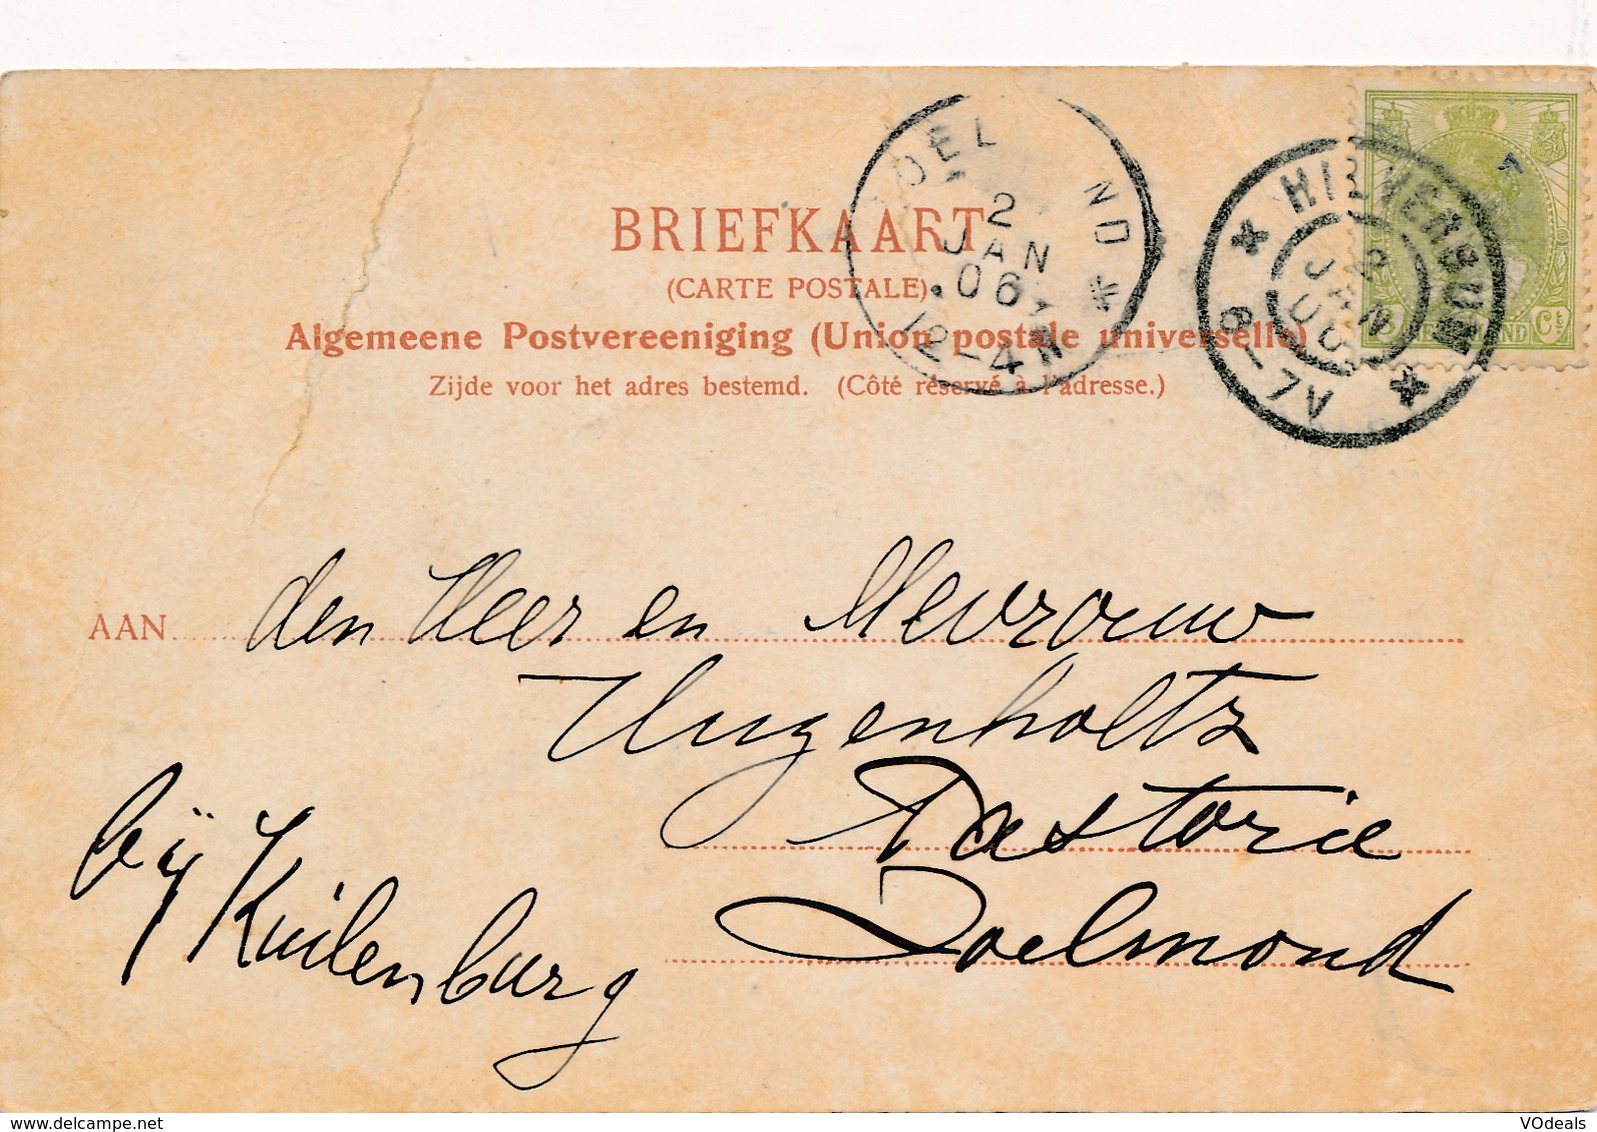 BRIEFKAART
(CARTE POSTALE).
Algemeene Postvereeniging (Union postale universelle)
Zijde voor het adres bestemd. (Côté réservé à l'adresse.)
2
JAN
06
12-4N
HILVERSUM
2
JAN
06
6-7V
Ct
AAN den Heer en Mevrouw
Hugenholtz
Pastorie
Doelmond
bij Kuilenburg
www.delcampe.net
VOdeals